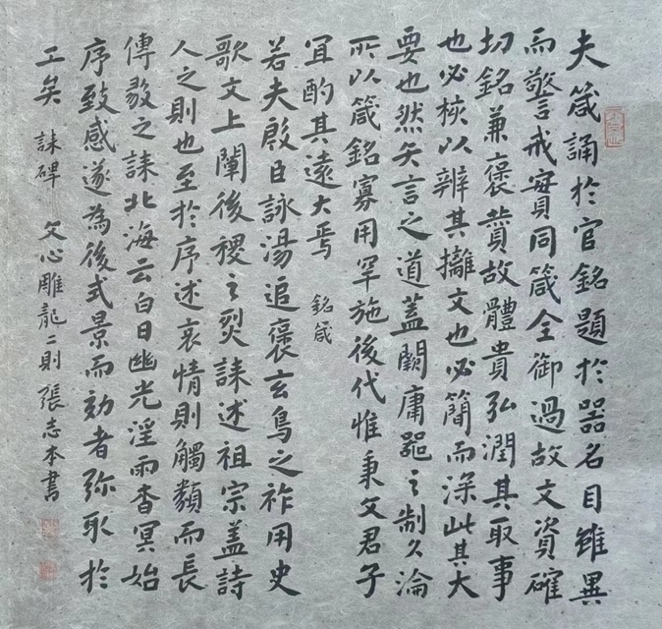 夫箴誦於官銘題於器名目雖異
而警戒實同箴全御過故文資確
切銘兼褒贊故體貴弘潤其取事
也必核以辨其摛文也必簡而深此其大
要也然矢言之道蓋闕庸器之制久淪
所以箴銘寡用罕施後代惟秉文君子
宜酌其遠大焉 銘箴
若夫殷臣詠湯追褒玄鳥之祚周史
歌文上闡後稷之烈誄述祖宗蓋詩
人之則也至於序述哀情則觸類而長
傅毅之誄北海云白日幽光淫雨杳冥始
序致感遂為後式景而効者弥取於
工矣 誄碑 文心雕龍二則張志本書